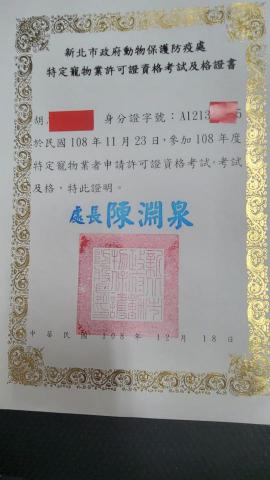 新北市政府動物保護防疫處
特定寵物業許可證資格考試及格證書
胡 身分證字號：A1213 5
於民國108年11月23日，參加108年度
特定寵物業者申請許可證資格考試，考試
及格，特此證明。
處長 陳淵泉
中華民國108年12月18日